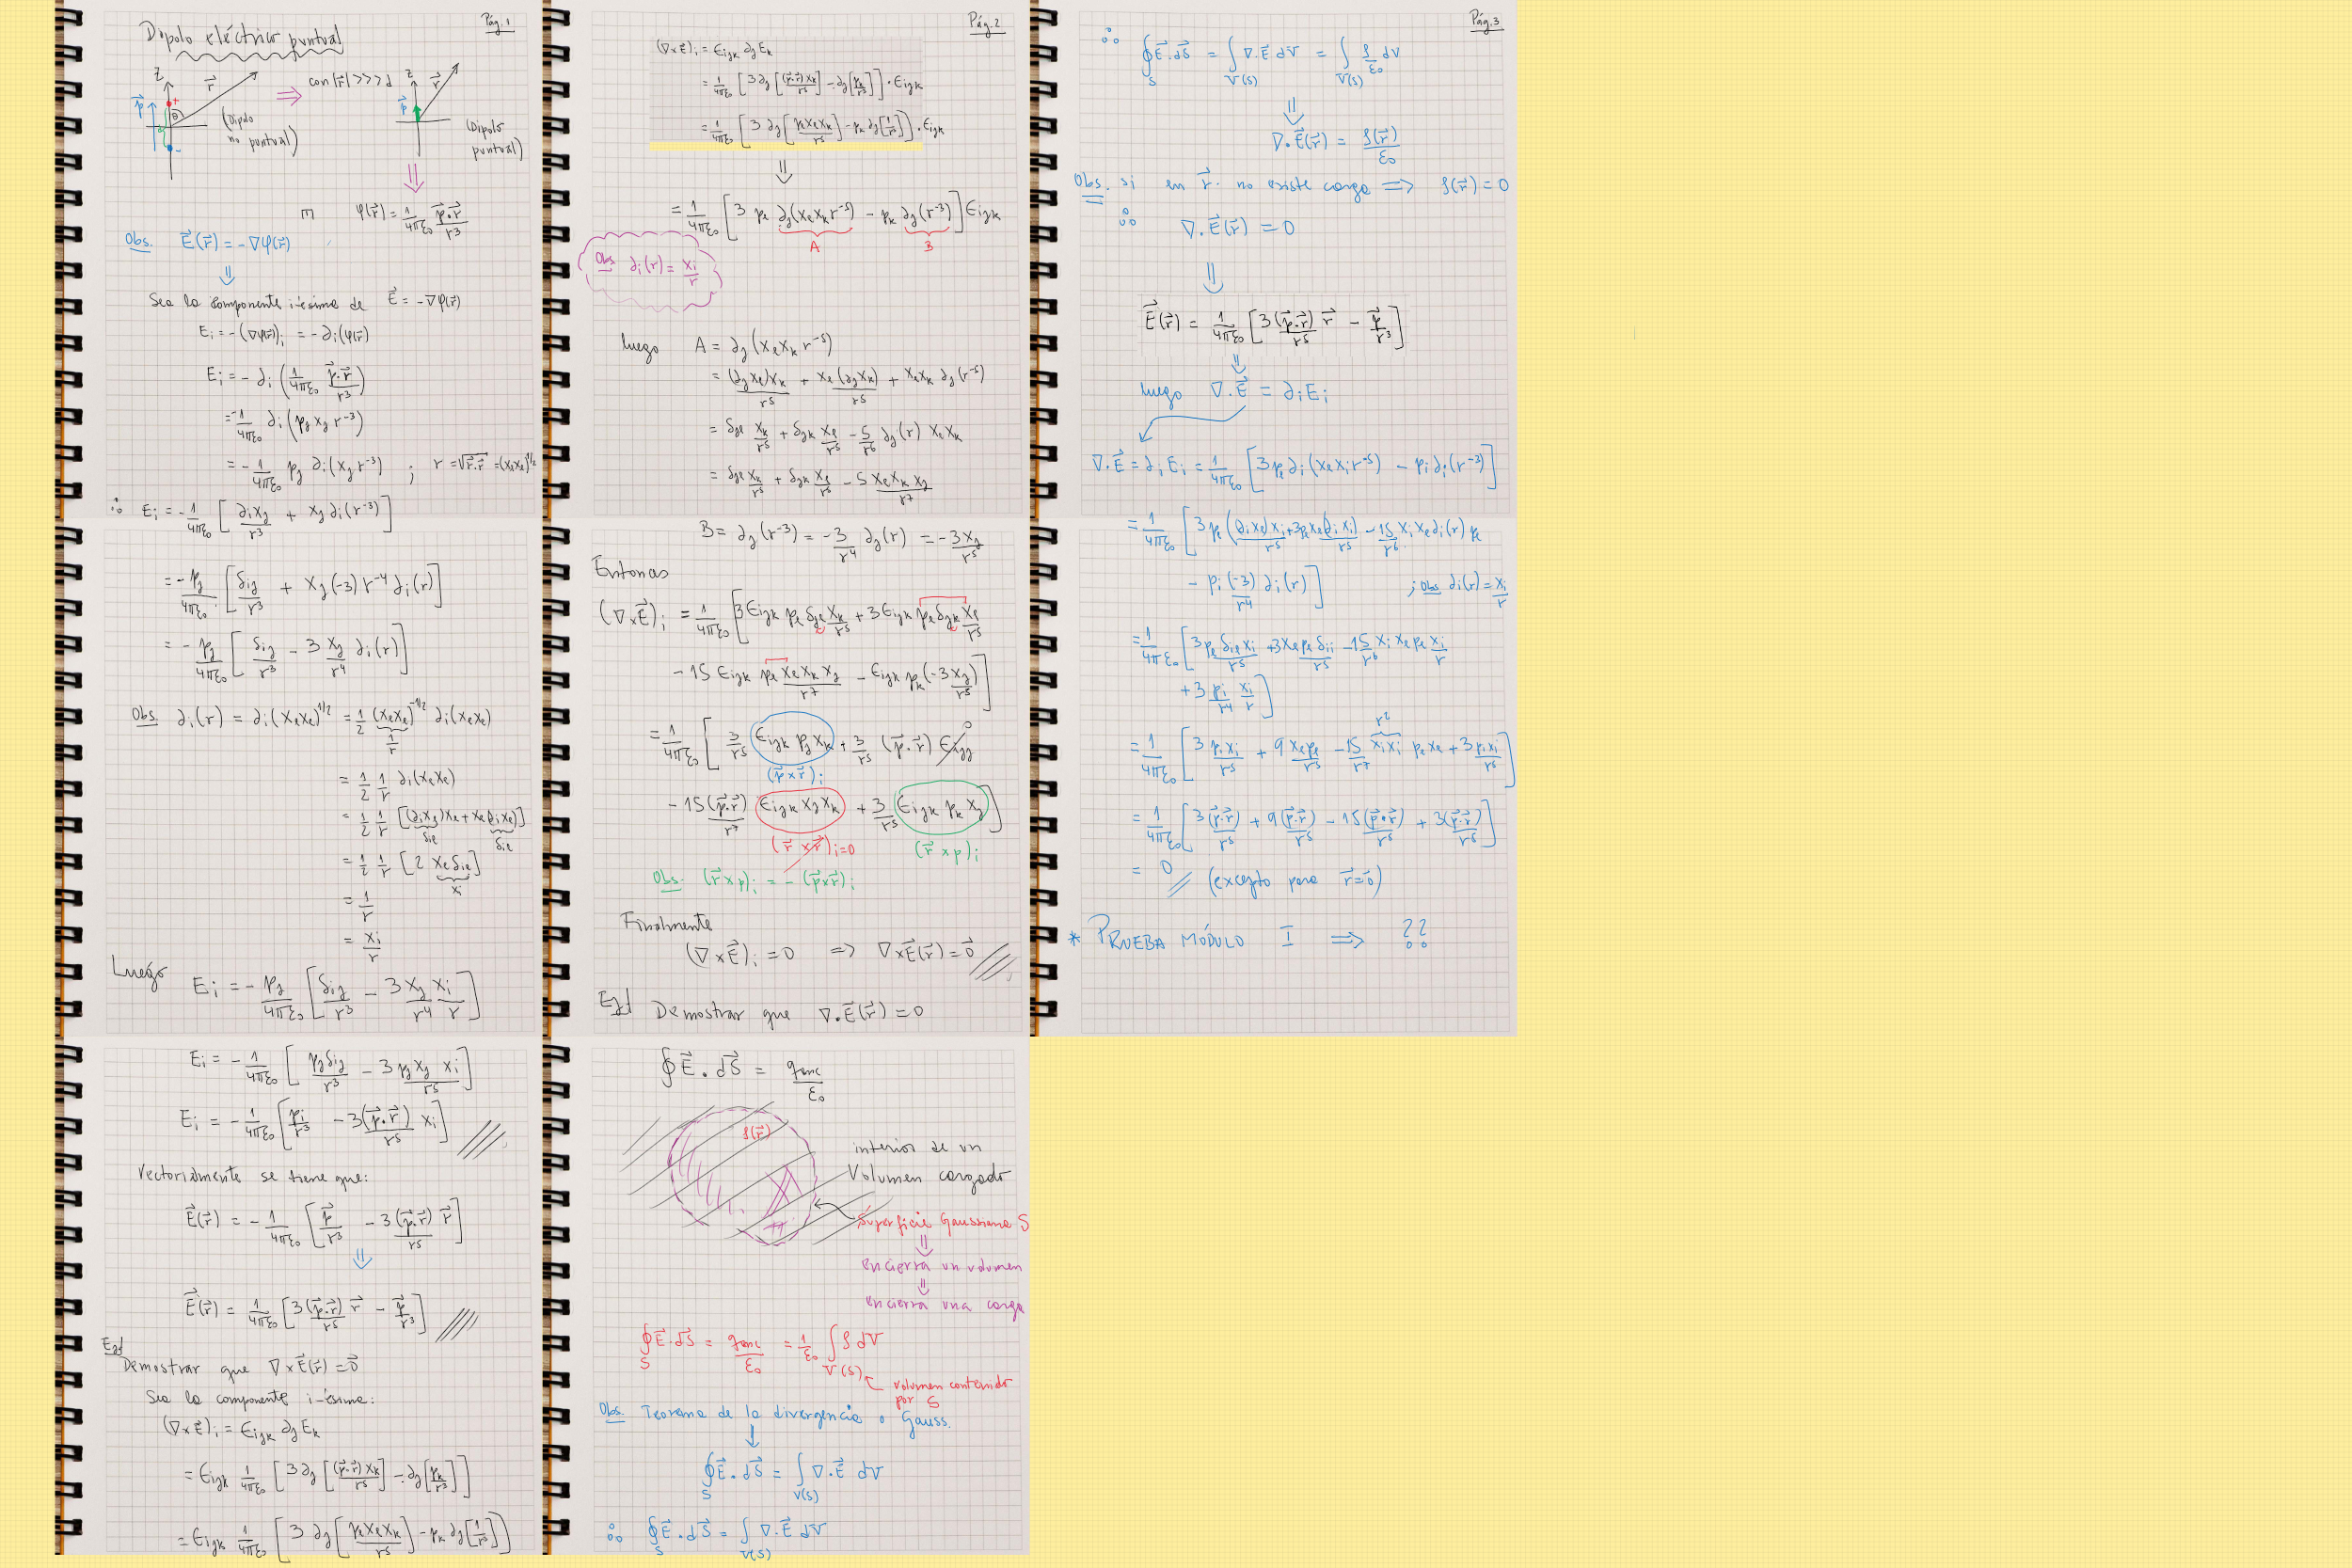 Pág. 1
Dipolo eléctrico puntual
z
r⃗
con |r⃗| >>> d
z
r⃗
p⃗
+
θ
d
-
(Dipolo no puntual)
⇒
p⃗
(Dipolo puntual)
⇓
φ(r⃗) = 1/4πε₀ p⃗·r⃗/r³
Obs. E⃗(r⃗) = -∇φ(r⃗)
⇓
Sea la componente i-ésima de E⃗ = -∇φ(r⃗)
Eᵢ = -(∇φ(r⃗))ᵢ = -∂ᵢ(φ(r⃗))
Eᵢ = -∂ᵢ(1/4πε₀ p⃗·r⃗/r³)
= -1/4πε₀ ∂ᵢ(pⱼ xⱼ r⁻³)
= -1/4πε₀ pⱼ ∂ᵢ(xⱼ r⁻³) ; r = √(r⃗·r⃗) = (xₑxₑ)^1/2
∴ Eᵢ = -1/4πε₀ [∂ᵢxⱼ/r³ + xⱼ∂ᵢ(r⁻³)]
= -pⱼ/4πε₀ [δᵢⱼ/r³ + xⱼ(-3) r⁻⁴ ∂ᵢ(r)]
= -pⱼ/4πε₀ [δᵢⱼ/r³ - 3 xⱼ/r⁴ ∂ᵢ(r)]
Obs. ∂ᵢ(r) = ∂ᵢ(xₑxₑ)^1/2 = 1/2 (xₑxₑ)^-1/2 ∂ᵢ(xₑxₑ)
1/r
= 1/2 1/r ∂ᵢ(xₑxₑ)
= 1/2 1/r [(∂ᵢxₑ)xₑ + xₑ(∂ᵢxₑ)]
δᵢₑ δᵢₑ
= 1/2 1/r [2 xₑδᵢₑ]
xᵢ
= 1/r
= xᵢ/r
Luego
Eᵢ = -pⱼ/4πε₀ [δᵢⱼ/r³ - 3 xⱼ/r⁴ xᵢ/r]
Eᵢ = -1/4πε₀ [pⱼδᵢⱼ/r³ - 3 pⱼxⱼ xᵢ/r⁵]
Eᵢ = -1/4πε₀ [pᵢ/r³ - 3(p⃗·r⃗)/r⁵ xᵢ]
Vectorialmente se tiene que:
E⃗(r⃗) = -1/4πε₀ [p⃗/r³ - 3(p⃗·r⃗)/r⁵ r⃗]
⇓
E⃗(r⃗) = 1/4πε₀ [3(p⃗·r⃗)/r⁵ r⃗ - p⃗/r³]
Ej
Demostrar que ∇×E⃗(r⃗) = 0⃗
Sea la componente i-ésima:
(∇×E⃗)ᵢ = εᵢⱼₖ ∂ⱼEₖ
= εᵢⱼₖ 1/4πε₀ [3∂ⱼ[(p⃗·r⃗)xₖ/r⁵] - ∂ⱼ[pₖ/r³]]
= εᵢⱼₖ 1/4πε₀ [3∂ⱼ[pₑxₑxₖ/r⁵] - pₖ∂ⱼ[1/r³]]
Pág. 2
(∇×E⃗)ᵢ = εᵢⱼₖ ∂ⱼEₖ
= 1/4πε₀ [3∂ⱼ[(p⃗·r⃗)xₖ/r⁵] - ∂ⱼ[pₖ/r³]]·εᵢⱼₖ
= 1/4πε₀ [3∂ⱼ[pₑxₑxₖ/r⁵] - pₖ∂ⱼ[1/r³]]·εᵢⱼₖ
⇓
= 1/4πε₀ [3 pₑ ∂ⱼ(xₑxₖr⁻⁵) - pₖ ∂ⱼ(r⁻³)] εᵢⱼₖ
A B
Obs ∂ᵢ(r) = xᵢ/r
luego A = ∂ⱼ(xₑxₖr⁻⁵)
= (∂ⱼxₑ)xₖ/r⁵ + xₑ(∂ⱼxₖ)/r⁵ + xₑxₖ ∂ⱼ(r⁻⁵)
= δⱼₑ xₖ/r⁵ + δⱼₖ xₑ/r⁵ - 5/r⁶ ∂ⱼ(r) xₑxₖ
= δⱼₑ xₖ/r⁵ + δⱼₖ xₑ/r⁵ - 5 xₑxₖxⱼ/r⁷
B = ∂ⱼ(r⁻³) = -3/r⁴ ∂ⱼ(r) = -3xⱼ/r⁵
Entonces
(∇×E⃗)ᵢ = 1/4πε₀ [3εᵢⱼₖ pₑδⱼₑ xₖ/r⁵ + 3εᵢⱼₖ pₑδⱼₖ xₑ/r⁵
- 15 εᵢⱼₖ pₑxₑxₖxⱼ/r⁷ - εᵢⱼₖ pₖ(-3xⱼ/r⁵)]
= 1/4πε₀ [3/r⁵ εᵢⱼₖ pⱼxₖ + 3/r⁵ (p⃗·r⃗) εᵢⱼⱼ 0
(p⃗×r⃗)ᵢ
- 15(p⃗·r⃗)/r⁷ εᵢⱼₖ xⱼxₖ + 3/r⁵ εᵢⱼₖ pₖxⱼ]
(r⃗×r⃗)ᵢ=0 (r⃗×p)ᵢ
Obs. (r⃗×p)ᵢ = -(p⃗×r⃗)ᵢ
Finalmente
(∇×E⃗)ᵢ = 0 ⇒ ∇×E⃗(r⃗) = 0⃗
Ej Demostrar que ∇·E⃗(r⃗) = 0
∮E⃗·dS⃗ = qenc/ε₀
ρ(r⃗)
interior de un
Volumen cargado
Superficie Gaussiana S
⇓
encierra un volumen
⇓
encierra una carga
∮S E⃗·dS⃗ = qenc/ε₀ = 1/ε₀ ∫V(S) ρ dV
volumen contenido
por S
Obs. Teorema de la divergencia o Gauss.
↓
∮S E⃗·dS⃗ = ∫V(S) ∇·E⃗ dV
∴ ∮S E⃗·dS⃗ = ∫V(S) ∇·E⃗ dV
Pág. 3
∴ ∮S E⃗·dS⃗ = ∫V(S) ∇·E⃗ dV = ∫V(S) ρ/ε₀ dV
⇓
∇·E⃗(r⃗) = ρ(r⃗)/ε₀
Obs. si en r⃗ no existe carga ⇒ ρ(r⃗) = 0
∴ ∇·E⃗(r⃗) = 0
⇓
E⃗(r⃗) = 1/4πε₀ [3(p⃗·r⃗)/r⁵ r⃗ - p⃗/r³]
⇓
luego ∇·E⃗ = ∂ᵢEᵢ
∇·E⃗ = ∂ᵢEᵢ = 1/4πε₀ [3pₑ∂ᵢ(xₑxᵢr⁻⁵) - pᵢ∂ᵢ(r⁻³)]
= 1/4πε₀ [3pₑ(∂ᵢxₑ)xᵢ/r⁵ + 3pₑxₑ(∂ᵢxᵢ)/r⁵ - 15/r⁶ xᵢxₑ∂ᵢ(r)pₑ
- pᵢ(-3)/r⁴ ∂ᵢ(r)] ; Obs ∂ᵢ(r) = xᵢ/r
= 1/4πε₀ [3pₑδᵢₑxᵢ/r⁵ + 3xₑpₑδᵢᵢ/r⁵ - 15/r⁶ xᵢxₑpₑ xᵢ/r
+ 3 pᵢ/r⁴ xᵢ/r]
r²
= 1/4πε₀ [3 pᵢxᵢ/r⁵ + 9 xₑpₑ/r⁵ - 15/r⁷ xᵢxᵢ pₑxₑ + 3 pᵢxᵢ/r⁵]
= 1/4πε₀ [3(p⃗·r⃗)/r⁵ + 9(p⃗·r⃗)/r⁵ - 15(p⃗·r⃗)/r⁵ + 3(p⃗·r⃗)/r⁵]
= 0 (excepto para r⃗=0⃗)
* PRUEBA MÓDULO I ⇒ ??